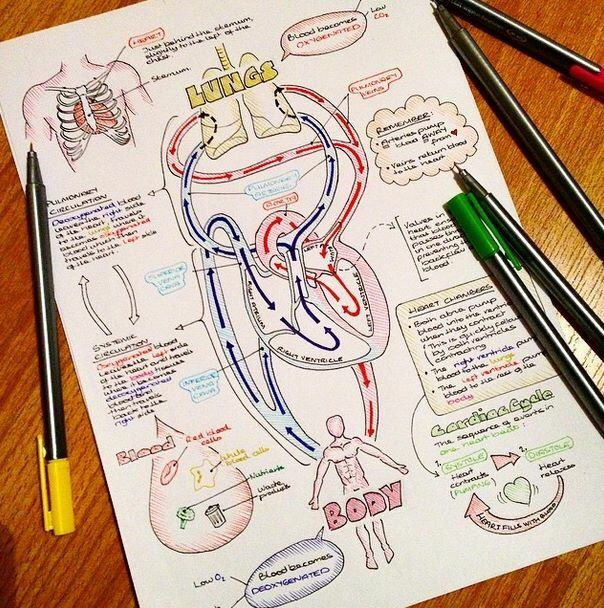 HEART
Just behind the sternum,
slightly to the left of the
chest.
Sternum
Blood becomes
OXYGENATED
Low
CO2
LUNGS
PULMONARY
VEINS
REMEMBER:
• Arteries pump
blood AWAY
from ♥
• Veins return blood
to the heart
PULMONARY
CIRCULATION
Deoxygenated blood
leaves the right side
of the heart, travels
to the lungs where it
becomes oxygenated
blood which then
travels to the left side
of the heart.
PULMONARY
ARTERIES
AORTA
SUPERIOR
VENA
CAVA
Valves in
heart
that blood
passes
in one
preventing
backflow
blood
LEFT
RIGHT ATRIUM
LEFT VENTRICLE
RIGHT VENTRICLE
SYSTEMIC
CIRCULATION
Oxygenated blood
leaves the left side
of the heart and travels
to the body
where it becomes
deoxygenated
blood and
then travels
back to the
right side
INFERIOR
VENA
CAVA
HEART CHAMBERS
• Both atria pump
blood into the
when they contract
• This is quickly followed
by both ventricles
contracting
• The right ventricle pumps
blood to the lungs
• The left ventricle pumps
blood to the rest of the
body
Cardiac Cycle
The sequence of events in
one heart beat:
1. SYSTOLE
Heart
contracts
PUMPING
2. DIASTOLE
Heart
relaxes
HEART FILLS WITH BLOOD
Blood
Red blood
cells
White
blood cells
Nutrients
Waste
products
BODY
Low O2
Blood becomes
DEOXYGENATED